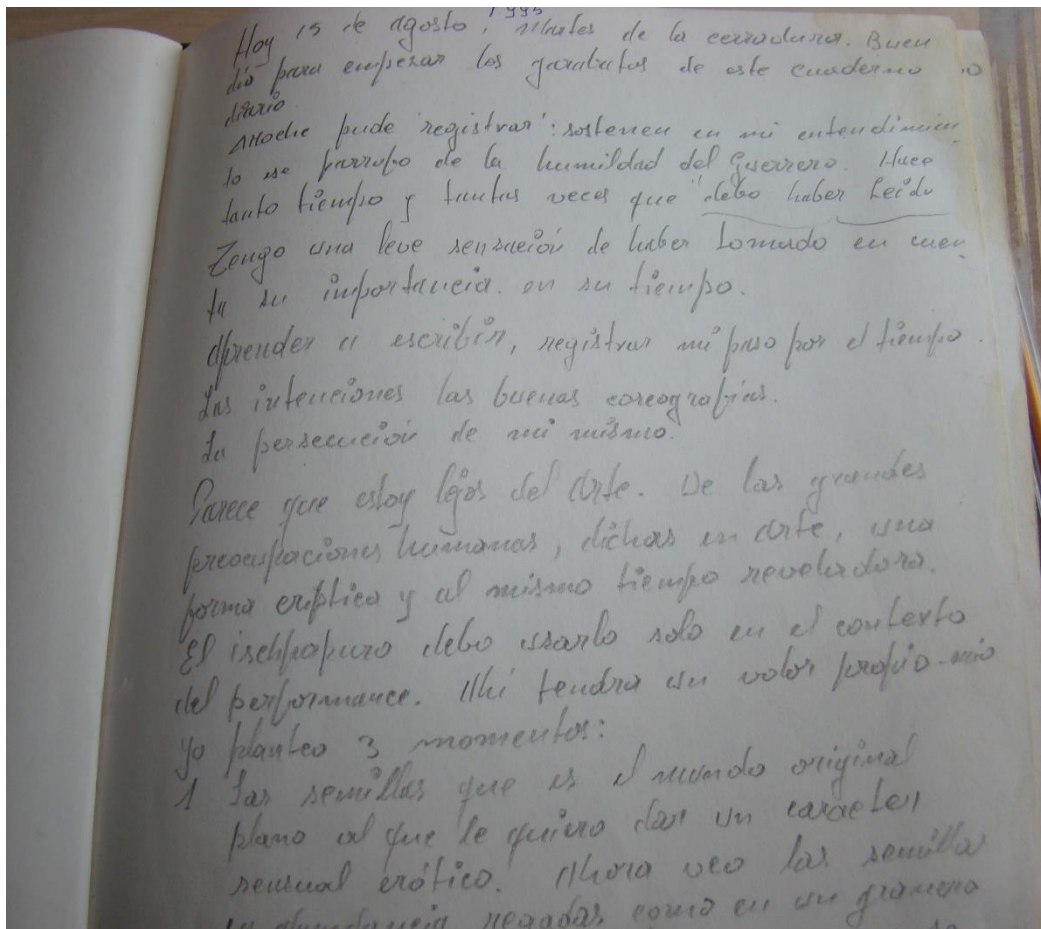 1995
Hoy 15 de agosto, Martes de la cerradura. Buen
día para empesar los garabatos de este cuaderno
diario.
Anoche pude 'registrar': sostener en mi entendimien
to ese parrafo de la humildad del Guerrero. Hace
tanto tiempo y tantas veces que "debo haber leido
Tengo una leve sensación de haber tomado en cuen
ta su importancia. en su tiempo.
Aprender a escribir, registrar mi paso por el tiempo.
Las intenciones las buenas coreografías.
La persecución de mi mismo.
Parece que estoy lejos del Arte. De las grandes
preocupaciones humanas, dichas en arte, una
forma criptica y al mismo tiempo reveladora.
El debo usarlo solo en el contexto
del performance. Ahi tendra un valor propio-mio
yo planteo 3 momentos:
1 Las semillas que es el mundo original
plano al que le quiero dar un caracter
sensual erótico. Ahora veo las semillas
abundancia regadas como en un granero